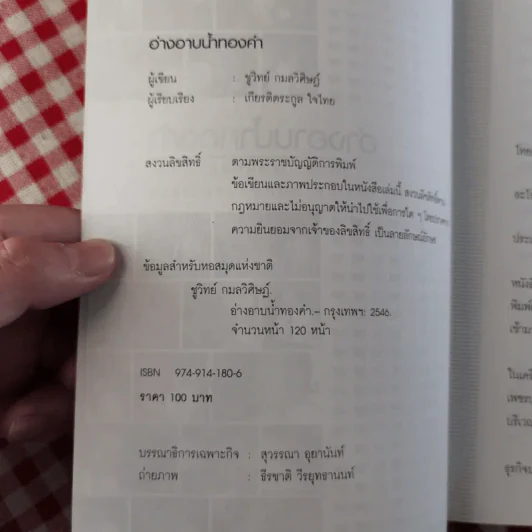 อ่างอาบน้ำทองคำ
ผู้เขียน : ชูวิทย์ กมลวิศิษฎ์
ผู้เรียบเรียง : เกียรติตระกูล ใจไทย
สงวนลิขสิทธิ์ ตามพระราชบัญญัติการพิมพ์
ข้อเขียนและภาพประกอบในหนังสือเล่มนี้ สงวนลิขสิทธิ์ตาม
กฎหมายและไม่อนุญาตให้นำไปใช้เพื่อการใด ๆ โดยปราศจาก
ความยินยอมจากเจ้าของลิขสิทธิ์ เป็นลายลักษณ์อักษร
ข้อมูลสำหรับหอสมุดแห่งชาติ
ชูวิทย์ กมลวิศิษฎ์.
อ่างอาบน้ำทองคำ.– กรุงเทพฯ: 2546.
จำนวนหน้า 120 หน้า
ISBN 974-914-180-6
ราคา 100 บาท
บรรณาธิการเฉพาะกิจ : สุวรรณา อุยานันท์
ถ่ายภาพ : ธีรชาติ วีรยุทธานนท์
โดย
หนังสื
พิมพ์
ในเครื
บริเวณ